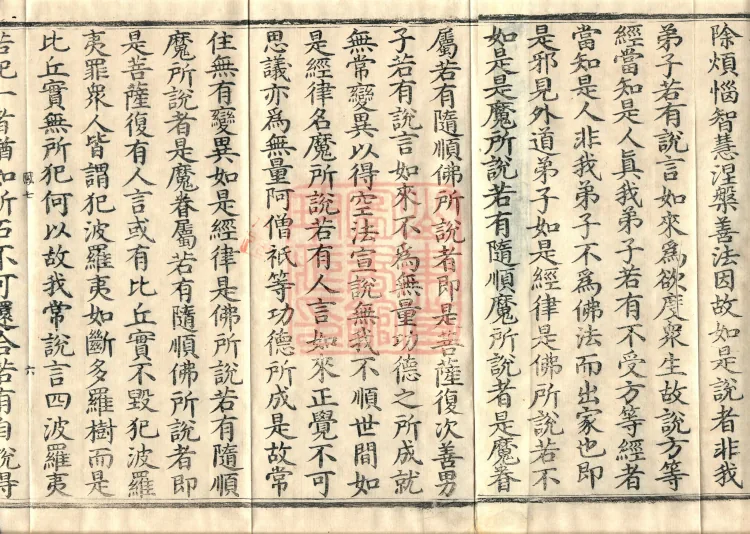 除煩惱智慧涅槃善法因故如是說者非我
弟子若有說言如來爲欲度衆生故說方等
經當知是人眞我弟子若有不受方等經者
當知是人非我弟子不爲佛法而出家也即
是邪見外道弟子如是經律是佛所說若不
如是是魔所說若有隨順魔所說者是魔眷
屬若有隨順佛所說者即是菩薩復次善男
子若有說言如來不爲無量功德之所成就
無常變異以得空法宣說無我不順世間如
是經律名魔所說若有人言如來正覺不可
思議亦爲無量阿僧祇等功德所成是故常
住無有變異如是經律是佛所說若有隨順
魔所說者是魔眷屬若有隨順佛所說者即
是菩薩復有人言或有比丘實不毀犯波羅
夷罪衆人皆謂犯波羅夷如斷多羅樹而是
比丘實無所犯何以故我常說言四波羅夷
七 六
若犯一者猶如析石不可還合若有自說得